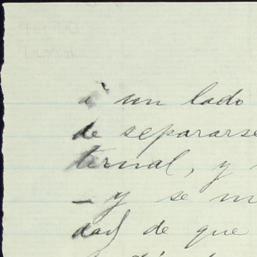 á un lado
de separarse
ternal, y
- y se
dad de que